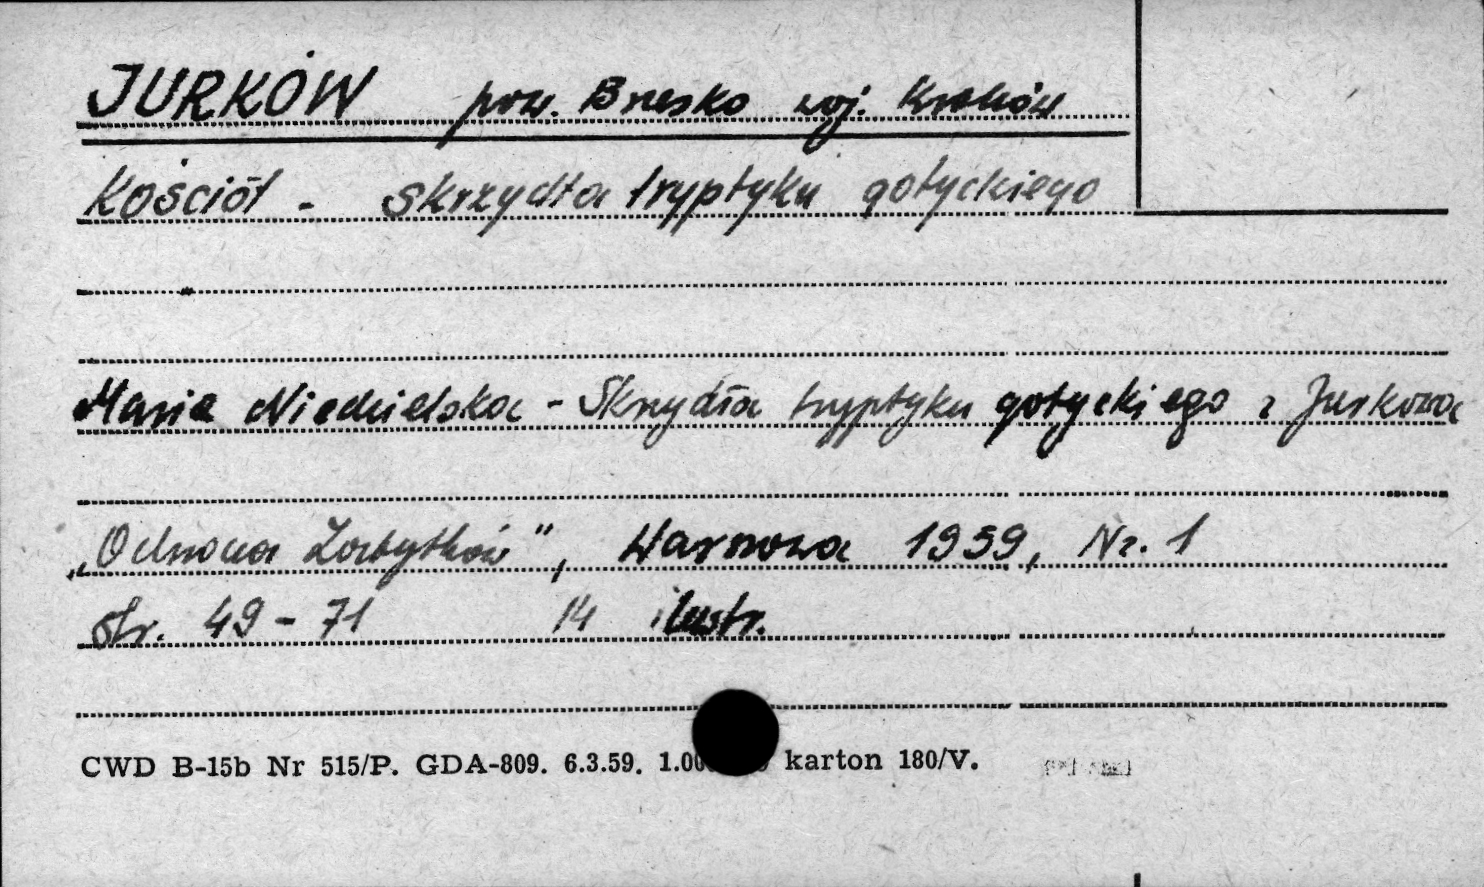 JURKÓW pow. Brzesko woj. Kraków
Kościół - skrzydła tryptyku gotyckiego
Maria Niedzielska - Skrzydła tryptyku gotyckiego z Jurkowa
„Ochrona Zabytków", Warszawa 1959, Nr. 1
str. 49 - 71 14 ilustr.
CWD B-15b Nr 515/P. GDA-809. 6.3.59. karton 180/V.